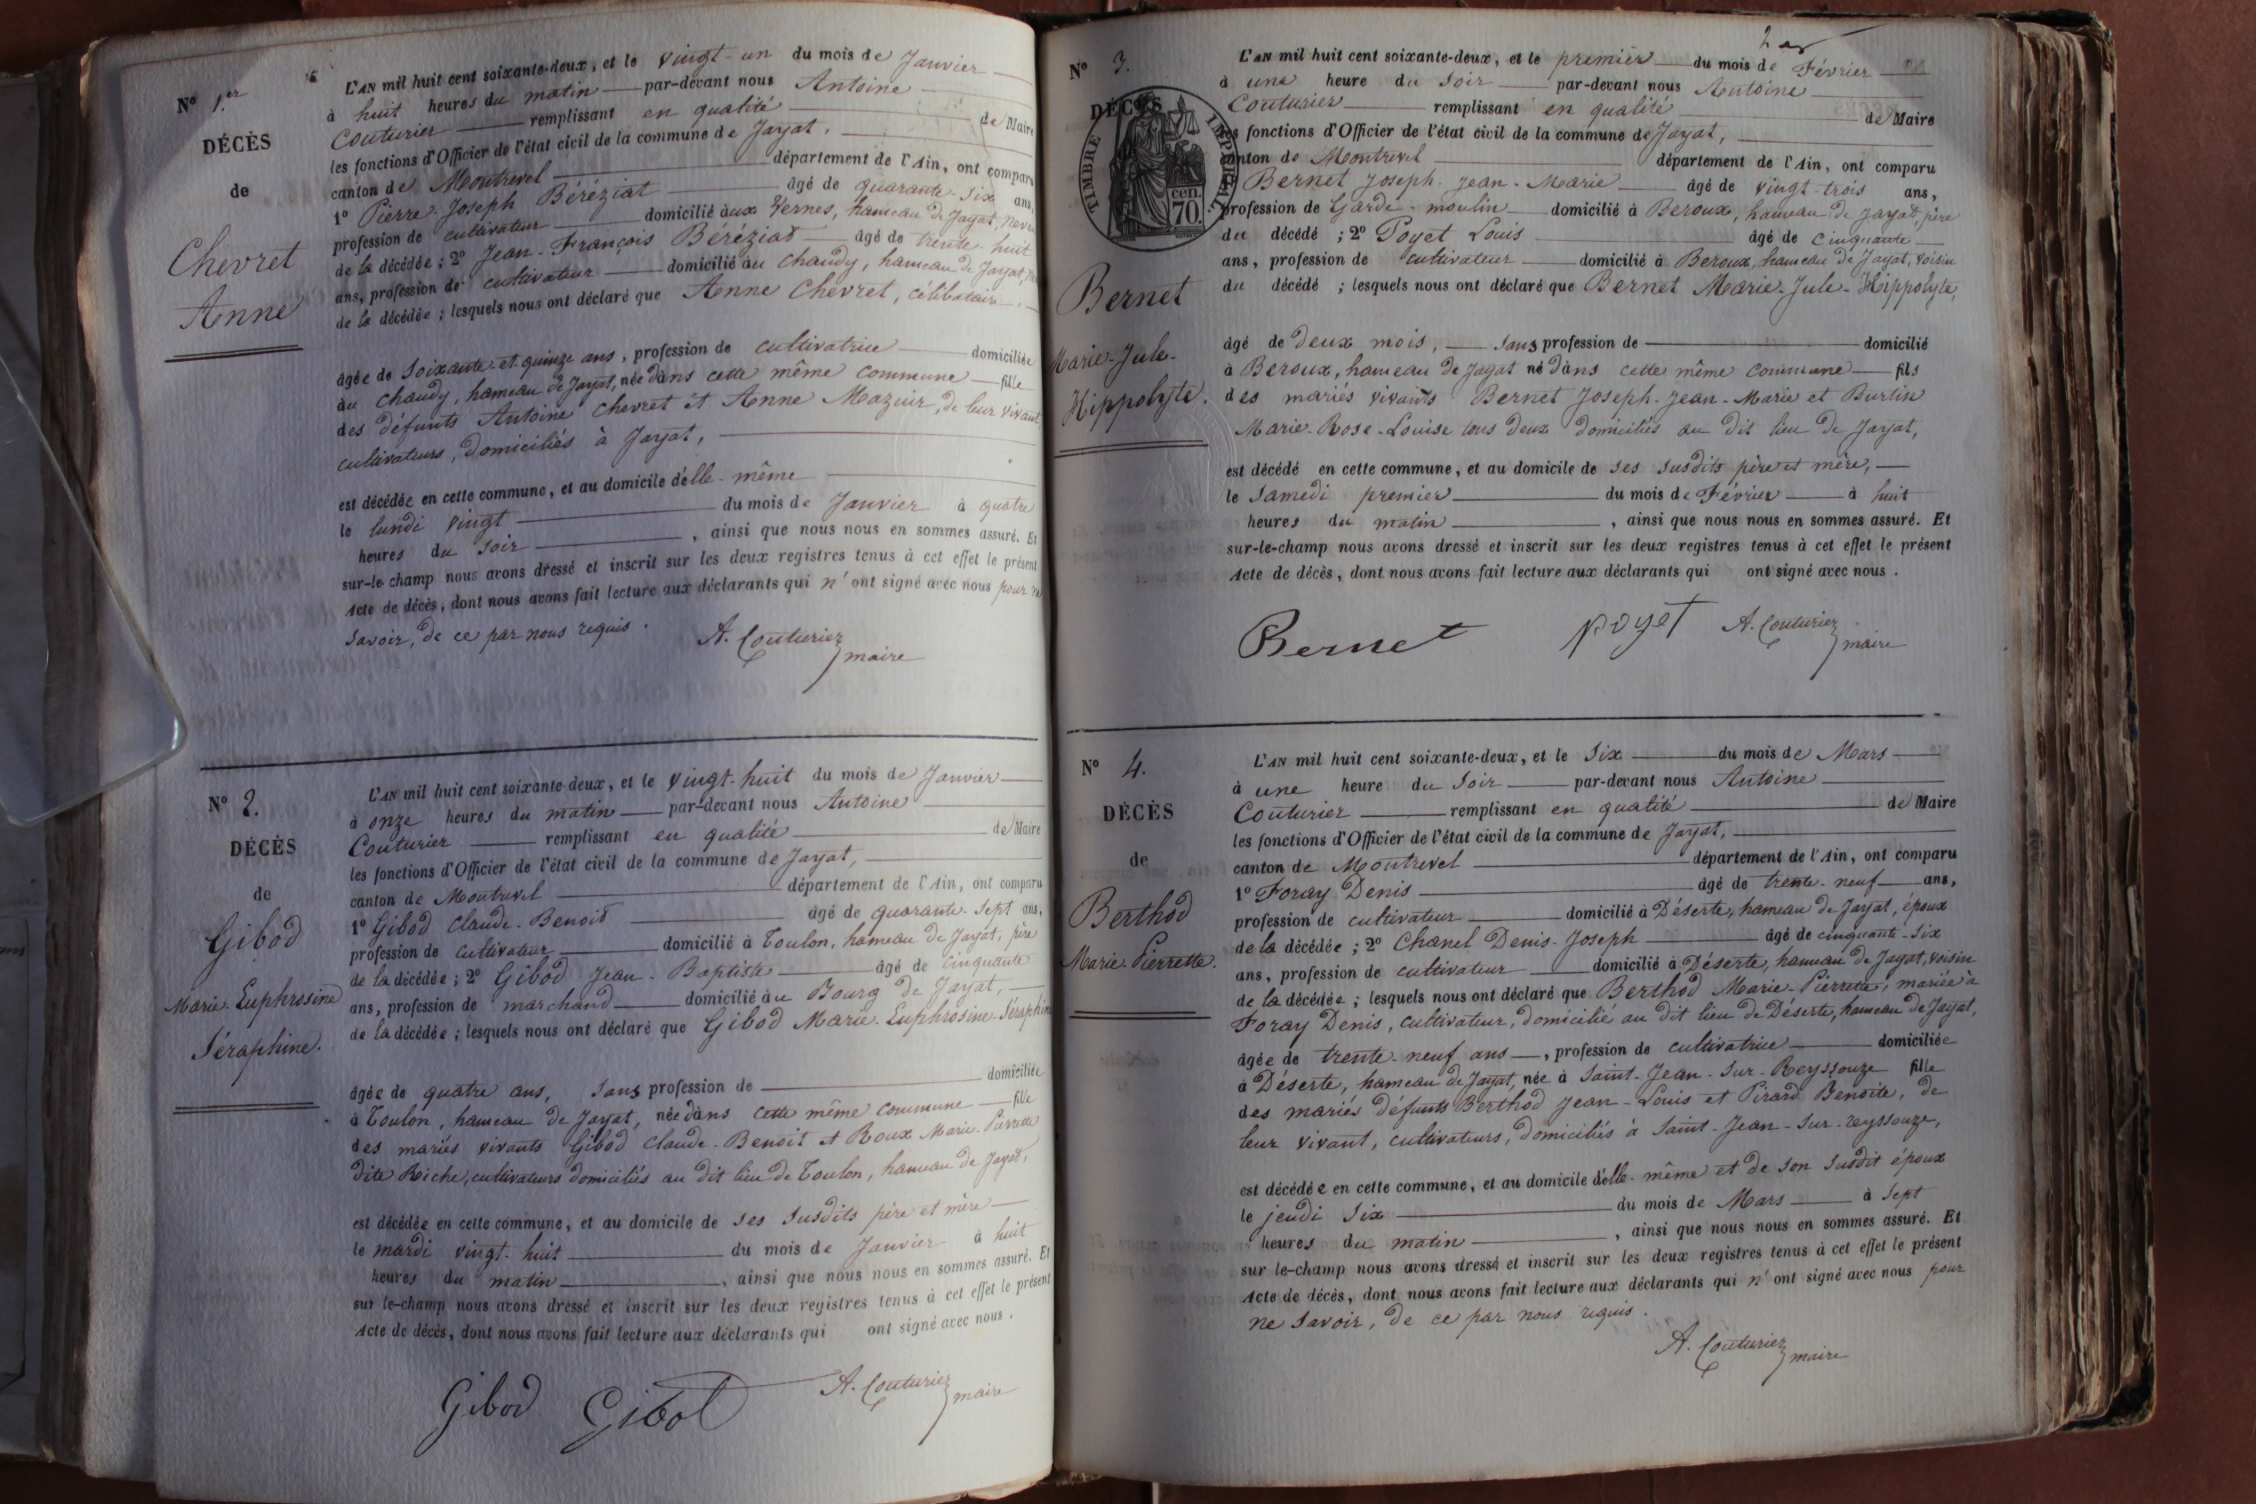 N° 1.er
DÉCÈS
de
Chevret
Anne
L'AN mil huit cent soixante-deux, et le vingt-un du mois de Janvier
à huit heures du matin par-devant nous Antoine
Couturier remplissant en qualité de Maire
les fonctions d'Officier de l'état civil de la commune de Jayat,
canton de Montrevel département de l'Ain, ont comparu
1° Pierre-Joseph Béréziat âgé de quarante-six ans,
profession de cultivateur domicilié aux Vernes, hameau de Jayat, neveu
de la décédée; 2° Jean-François Béréziat âgé de trente-huit
ans, profession de cultivateur domicilié au Chaudy, hameau de Jayat,
de la décédée; lesquels nous ont déclaré que Anne Chevret, célibataire,
âgée de soixante-et-quinze ans, profession de cultivatrice domiciliée
au Chaudy, hameau de Jayat, née dans cette même commune fille
des défunts Antoine Chevret et Anne Mazuir, de leur vivant
cultivateurs, domiciliés à Jayat,
est décédée en cette commune, et au domicile d'elle-même
le lundi vingt du mois de Janvier à quatre
heures du soir, ainsi que nous nous en sommes assuré. Et
sur-le-champ nous avons dressé et inscrit sur les deux registres tenus à cet effet le présent
Acte de décès, dont nous avons fait lecture aux déclarants qui n'ont signé avec nous pour ne
savoir, de ce par nous requis.
A. Couturier
maire
N° 2.
DÉCÈS
de
Gibod
Marie-Euphrosine
Séraphine.
L'AN mil huit cent soixante-deux, et le vingt-huit du mois de Janvier
à onze heures du matin par-devant nous Antoine
Couturier remplissant en qualité de Maire
les fonctions d'Officier de l'état civil de la commune de Jayat,
canton de Montrevel département de l'Ain, ont comparu
1° Gibod Claude-Benoit âgé de quarante-sept ans,
profession de cultivateur domicilié à Toulon, hameau de Jayat, père
de la décédée; 2° Gibod Jean-Baptiste âgé de cinquante
ans, profession de marchand domicilié au Bourg de Jayat,
de la décédée; lesquels nous ont déclaré que Gibod Marie-Euphrosine-Séraphine
âgée de quatre ans, sans profession de domiciliée
à Toulon, hameau de Jayat, née dans cette même commune fille
des mariés vivants Gibod Claude-Benoit et Roux Marie-Pierrette
dite Riche, cultivateurs domiciliés au dit lieu de Toulon, hameau de Jayat,
est décédée en cette commune, et au domicile de ses susdits père et mère
le mardi vingt-huit du mois de Janvier à huit
heures du matin, ainsi que nous nous en sommes assuré. Et
sur le-champ nous avons dressé et inscrit sur les deux registres tenus à cet effet le présent
Acte de décès, dont nous avons fait lecture aux déclarants qui ont signé avec nous.
Gibod Gibod A. Couturier
maire
N° 3.
DÉCÈS
TIMBRE IMPERIAL
70 cen.
Bernet
Marie-Jule-
Hippolyte.
L'AN mil huit cent soixante-deux, et le premier du mois de Février
à une heure du soir par-devant nous Antoine
Couturier remplissant en qualité de Maire
les fonctions d'Officier de l'état civil de la commune de Jayat,
canton de Montrevel département de l'Ain, ont comparu
Bernet Joseph-Jean-Marie âgé de vingt-trois ans,
profession de Garde-moulin domicilié à Beroux, hameau de Jayat, père
du décédé; 2° Poyet Louis âgé de cinquante
ans, profession de cultivateur domicilié à Beroux, hameau de Jayat, voisin
du décédé; lesquels nous ont déclaré que Bernet Marie-Jule-Hippolyte,
âgé de deux mois, sans profession de domicilié
à Beroux, hameau de Jayat né dans cette même commune fils
des mariés vivants Bernet Joseph-Jean-Marie et Burtin
Marie-Rose-Louise tous deux domiciliés au dit lieu de Jayat,
est décédé en cette commune, et au domicile de ses susdits père et mère,
le samedi premier du mois de Février à huit
heures du matin, ainsi que nous nous en sommes assuré. Et
sur-le-champ nous avons dressé et inscrit sur les deux registres tenus à cet effet le présent
Acte de décès, dont nous avons fait lecture aux déclarants qui ont signé avec nous.
Bernet poyet A. Couturier
maire
N° 4.
DÉCÈS
de
Berthod
Marie-Pierrette.
L'AN mil huit cent soixante-deux, et le six du mois de Mars
à une heure du soir par-devant nous Antoine
Couturier remplissant en qualité de Maire
les fonctions d'Officier de l'état civil de la commune de Jayat,
canton de Montrevel département de l'Ain, ont comparu
1° Foray Denis âgé de trente-neuf ans,
profession de cultivateur domicilié à Déserte, hameau de Jayat, époux
de la décédée; 2° Chanel Denis-Joseph âgé de cinquante-six
ans, profession de cultivateur domicilié à Déserte, hameau de Jayat, voisin
de la décédée; lesquels nous ont déclaré que Berthod Marie-Pierrette, mariée à
Foray Denis, cultivateur, domicilié au dit lieu de Déserte, hameau de Jayat,
âgée de trente-neuf ans, profession de cultivatrice domiciliée
à Déserte, hameau de Jayat, née à Saint-Jean-sur-Reyssouze fille
des mariés défunts Berthod Jean-Louis et Pirard Benoite, de
leur vivant, cultivateurs, domiciliés à Saint-Jean-sur-reyssouze,
est décédée en cette commune, et au domicile d'elle-même et de son susdit époux
le jeudi six du mois de Mars à sept
heures du matin, ainsi que nous nous en sommes assuré. Et
sur le-champ nous avons dressé et inscrit sur les deux registres tenus à cet effet le présent
Acte de décès, dont nous avons fait lecture aux déclarants qui n'ont signé avec nous pour
ne savoir, de ce par nous requis.
A. Couturier
maire